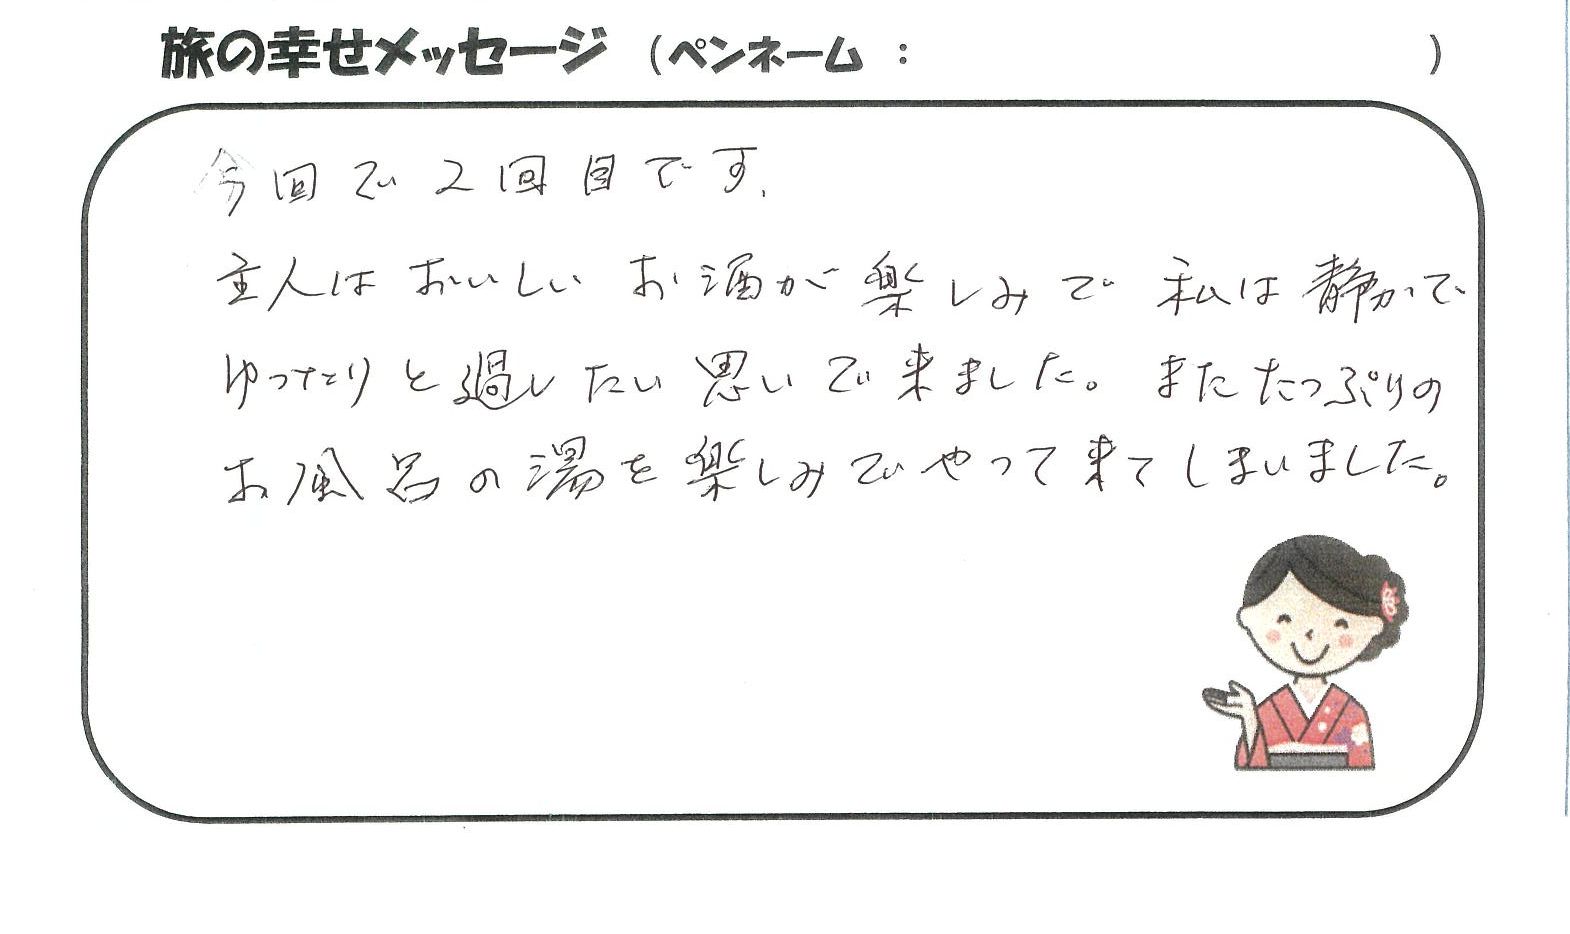 旅の幸せメッセージ （ペンネーム：　　　　）
今回で2回目です。
主人はおいしいお酒が楽しみで 私は静かで
ゆったりと過したい思いで来ました。またたっぷりの
お風呂の湯を楽しみでやって来てしまいました。